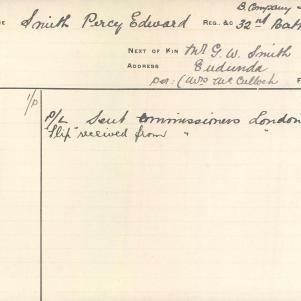 B. Company
Smith Percy Edward REG. &C 32nd Batt
NEXT OF KIN Mr G. W. Smith
ADDRESS Eudunda
(Mrs McCulloch F
1/P
P/L Sent Commissioners London
"Slip" received from " "